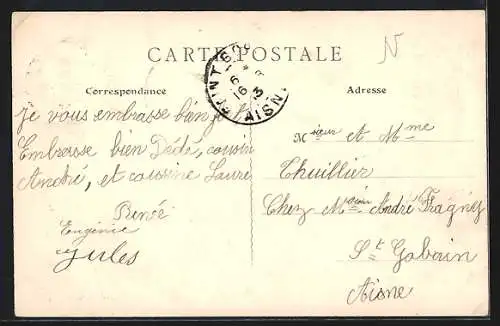 CARTE POSTALE
N
Correspondance
Adresse
AISNE
Je vous embrasse bien
Embrasse bien Dédé, cousin
André, et cousine Laure
Renée
Eugénie
Jules
Msieur et Mme
Thuillier
Chez Mr André Fragney
St Gobain
Aisne